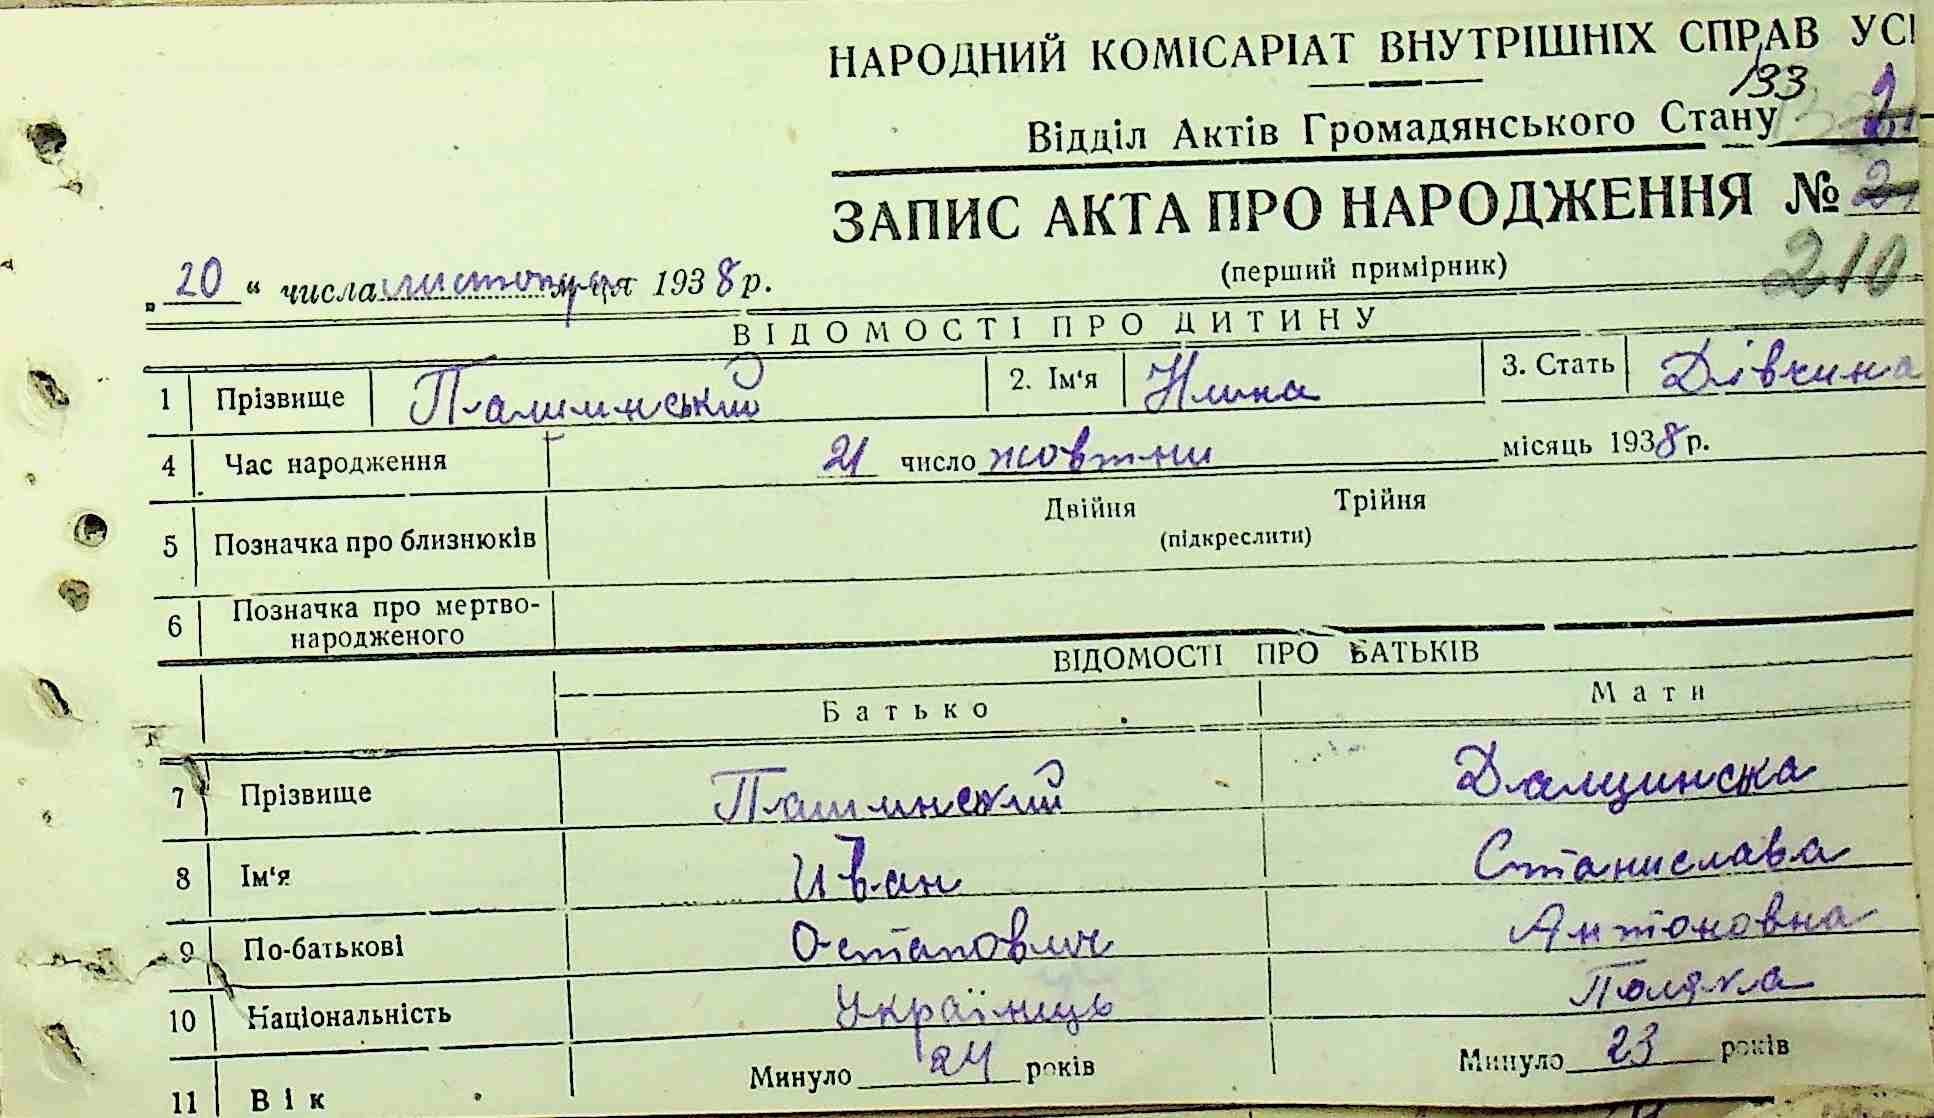 НАРОДНИЙ КОМІСАРІАТ ВНУТРІШНІХ СПРАВ УСР
133
Відділ Актів Громадянського Стану
ЗАПИС АКТА ПРО НАРОДЖЕННЯ №
210
(перший примірник)
„20“ числа листопада м-ця 1938 р.
ВІДОМОСТІ ПРО ДИТИНУ
1 Прізвище 2. Ім'я Нина 3. Стать Дівчина
4 Час народження 21 число жовтни місяць 1938 р.
Двійня Трійня
5 Позначка про близнюків (підкреслити)
6 Позначка про мертво-
народженого
ВІДОМОСТІ ПРО БАТЬКІВ
Батько Мати
7 Прізвище
8 Ім'я Иван Станислава
9 По-батькові Остапович Антоновна
10 Національність Українець Полячка
11 Вік Минуло 24 років Минуло 23 років